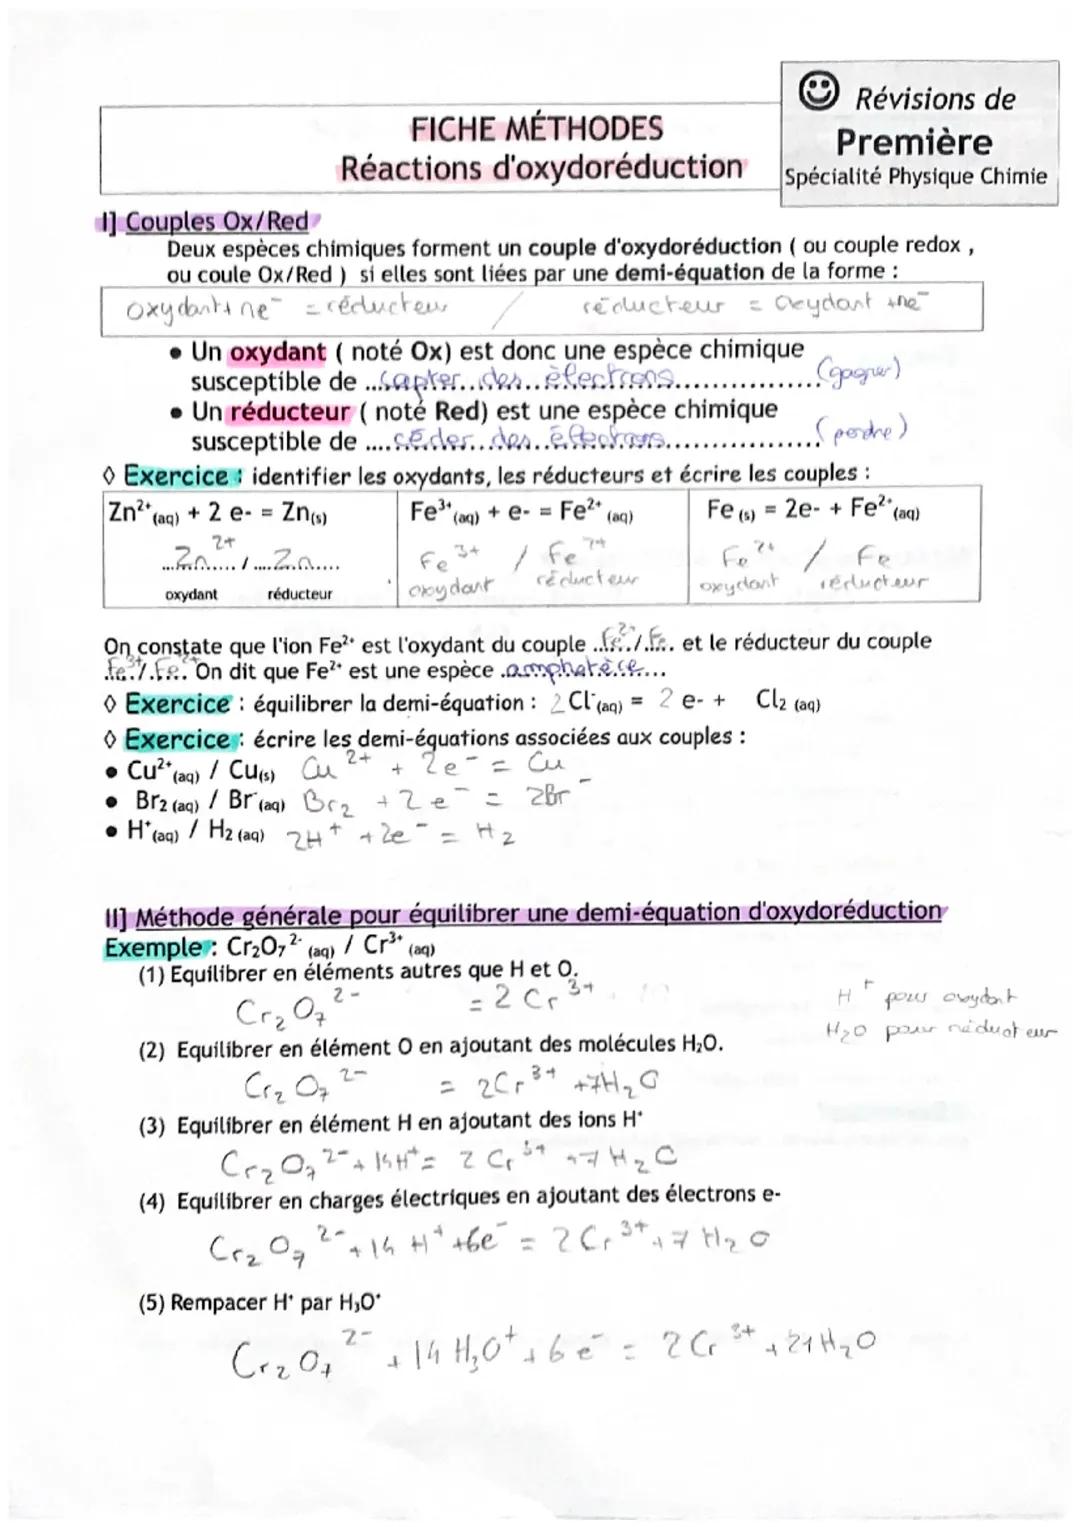 ☺ Révisions de
Première
Spécialité Physique Chimie
FICHE MÉTHODES
Réactions d'oxydoréduction
I] Couples Ox/Red
Deux espèces chimiques forment un couple d'oxydoréduction ( ou couple redox ,
ou coule Ox/Red ) si elles sont liées par une demi-équation de la forme :
oxydant + ne⁻ = réducteur / réducteur = oxydant + ne⁻
• Un oxydant ( noté Ox) est donc une espèce chimique
susceptible de ...capter...des...électrons............... (gagner)
• Un réducteur ( noté Red) est une espèce chimique
susceptible de ....céder...des...électrons............... (perdre)
◊ Exercice : identifier les oxydants, les réducteurs et écrire les couples :
Zn²⁺(aq) + 2 e- = Zn(s) Fe³⁺(aq) + e- = Fe²⁺(aq) Fe(s) = 2e- + Fe²⁺(aq)
...Zn²⁺.... / ....Zn.... Fe³⁺ / Fe²⁺ Fe²⁺ / Fe
oxydant réducteur oxydant réducteur oxydant réducteur
On constate que l'ion Fe²⁺ est l'oxydant du couple ..Fe²⁺./.Fe.. et le réducteur du couple
.Fe³⁺./.Fe²⁺. On dit que Fe²⁺ est une espèce .amphotère......
◊ Exercice : équilibrer la demi-équation : 2 Cl⁻(aq) = 2 e- + Cl₂ (aq)
◊ Exercice : écrire les demi-équations associées aux couples :
• Cu²⁺(aq) / Cu(s) Cu²⁺ + 2e⁻ = Cu
• Br₂ (aq) / Br⁻(aq) Br₂ + 2e⁻ = 2Br⁻
• H⁺(aq) / H₂ (aq) 2H⁺ + 2e⁻ = H₂
II] Méthode générale pour équilibrer une demi-équation d'oxydoréduction
Exemple : Cr₂O₇²⁻ (aq) / Cr³⁺ (aq)
(1) Equilibrer en éléments autres que H et O.
Cr₂O₇²⁻ = 2 Cr³⁺
H⁺ pour oxydant
H₂O pour réducteur
(2) Equilibrer en élément O en ajoutant des molécules H₂O.
Cr₂O₇²⁻ = 2Cr³⁺ + 7H₂O
(3) Equilibrer en élément H en ajoutant des ions H⁺
Cr₂O₇²⁻ + 14H⁺ = 2 Cr³⁺ + 7 H₂O
(4) Equilibrer en charges électriques en ajoutant des électrons e-
Cr₂O₇²⁻ + 14 H⁺ + 6e⁻ = 2Cr³⁺ + 7 H₂O
(5) Rempacer H⁺ par H₃O⁺
Cr₂O₇²⁻ + 14 H₃O⁺ + 6e⁻ = 2Cr³⁺ + 21H₂O